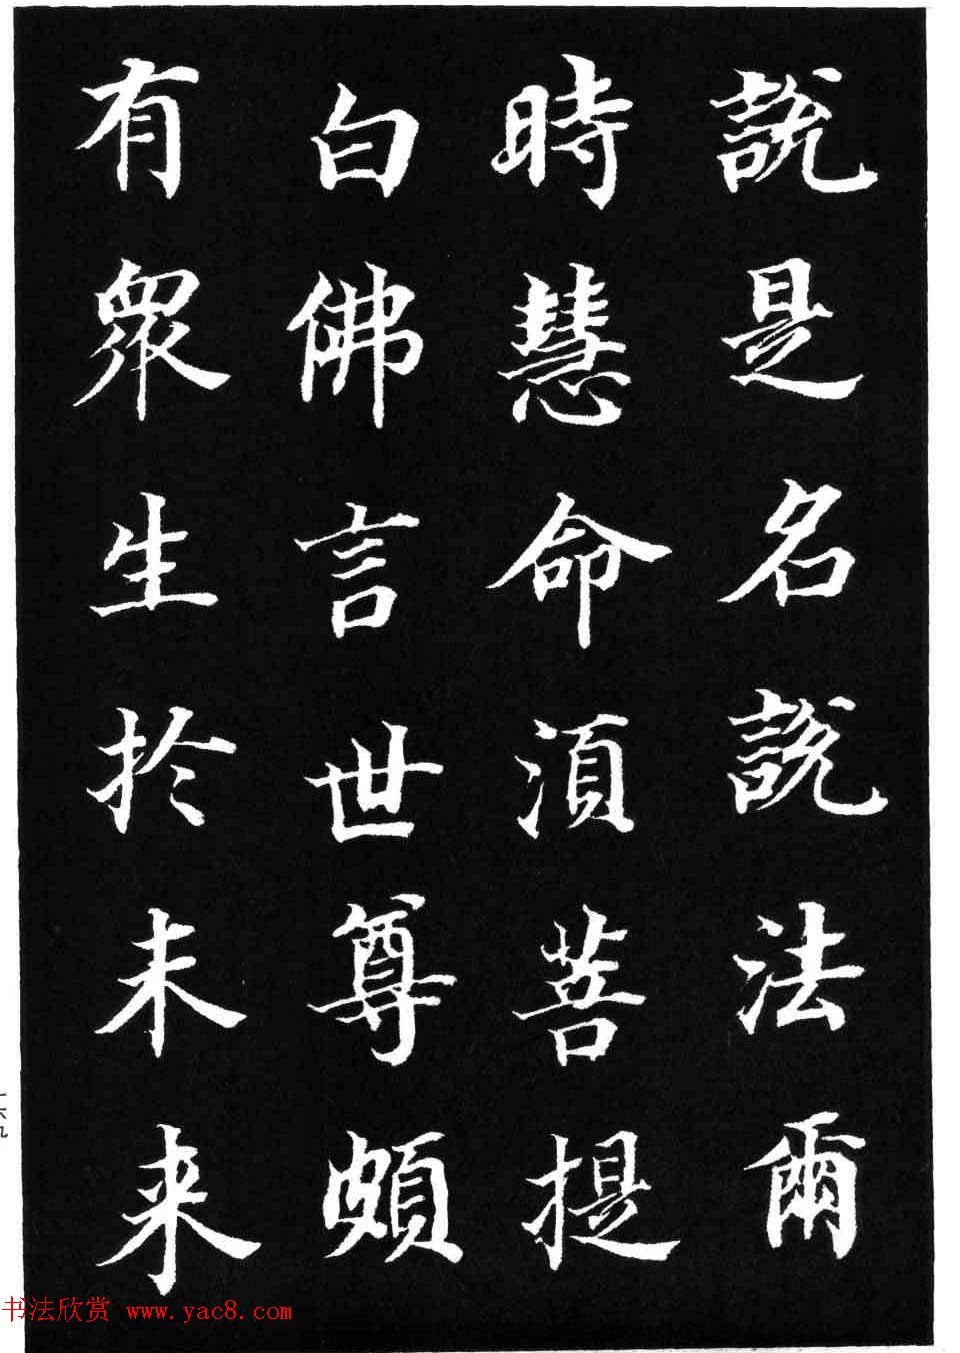 說是名說法爾
時慧命須菩提
白佛言世尊頗
有眾生於未来
一六九
书法欣赏 www.yac8.com